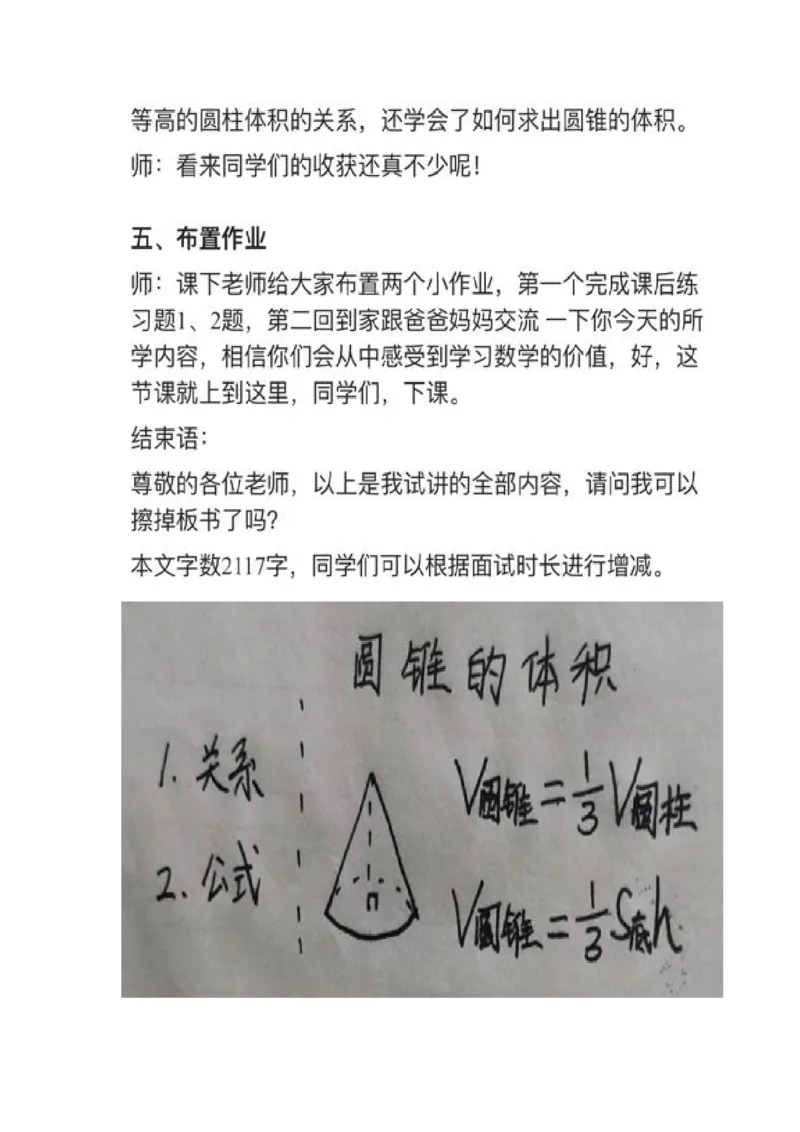 等高的圆柱体积的关系，还学会了如何求出圆锥的体积。
师：看来同学们的收获还真不少呢！
五、布置作业
师：课下老师给大家布置两个小作业，第一个完成课后练
习题1、2题，第二回到家跟爸爸妈妈交流 一下你今天的所
学内容，相信你们会从中感受到学习数学的价值，好，这
节课就上到这里，同学们，下课。
结束语：
尊敬的各位老师，以上是我试讲的全部内容，请问我可以
擦掉板书了吗？
本文字数2117字，同学们可以根据面试时长进行增减。
圆锥的体积
1. 关系
V圆锥=1/3V圆柱
2. 公式
V圆锥=1/3S底h